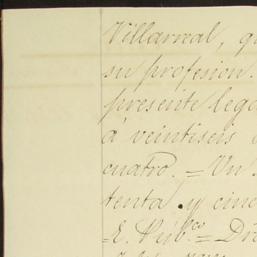 Villarreal, qu
su profesion.
presente lega
á veintiseis
cuatro. = Un
tenta y cinc
= E. Púb.co = Dro